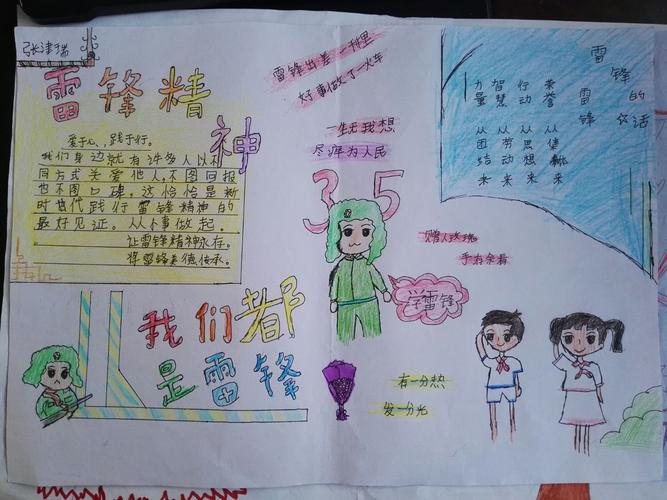 张津瑞
雷锋精神
爱于心、践于行。
我们身边就有许多人以
同方式关爱他人,不图回报
也不图口碑,这恰恰是新
时代践行雷锋精神的
最好见证。从小事做起.
让雷锋精神永存.
将雷锋美德传承.
雷锋出差一千里
好事做了一火车
一生无我想
尽瘁为人民
35
学雷锋
雷锋的话
雷锋
力量从团结来
智慧从劳动来
行动从思想来
荣誉从集体来
赠人玫瑰
手有余香
我们都
是雷锋
有一分热
发一分光